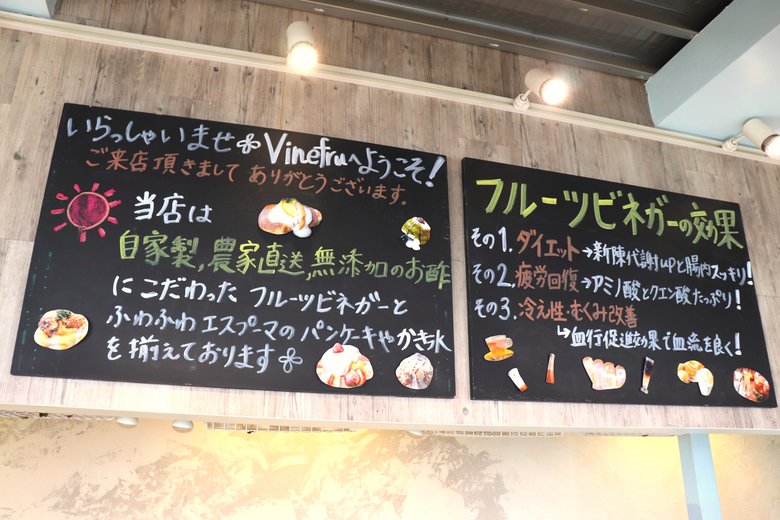 いらっしゃいませ Vinefruへようこそ!
ご来店頂きまして ありがとうございます。
当店は
自家製,農家直送,無添加のお酢
にこだわった フルーツビネガーと
ふわふわ エスプーマの パンケーキや かき氷
を揃えております
フルーツビネガーの効果
その1. ダイエット→新陳代謝upと腸内スッキリ!
その2. 疲労回復→アミノ酸とクエン酸たっぷり!
その3. 冷え性・むくみ改善
↳血行促進効果で血流を良く!